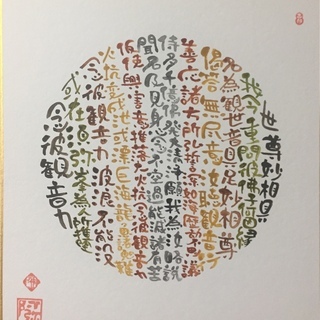 世尊妙相具
我今重問彼佛子何因縁
名為観世音具足妙相尊
偈答無尽意汝聴観音行
善応諸方所弘誓深如海歴劫不思議
侍多千億佛発大清浄願我為汝略説
聞名及見身心念不空過能滅諸有苦
仮使興害意推落大火坑念彼観音力
火坑変成池或漂流巨海龍魚諸鬼難
念彼観音力波浪不能没
或在須弥峯為人所推堕
念彼観音力